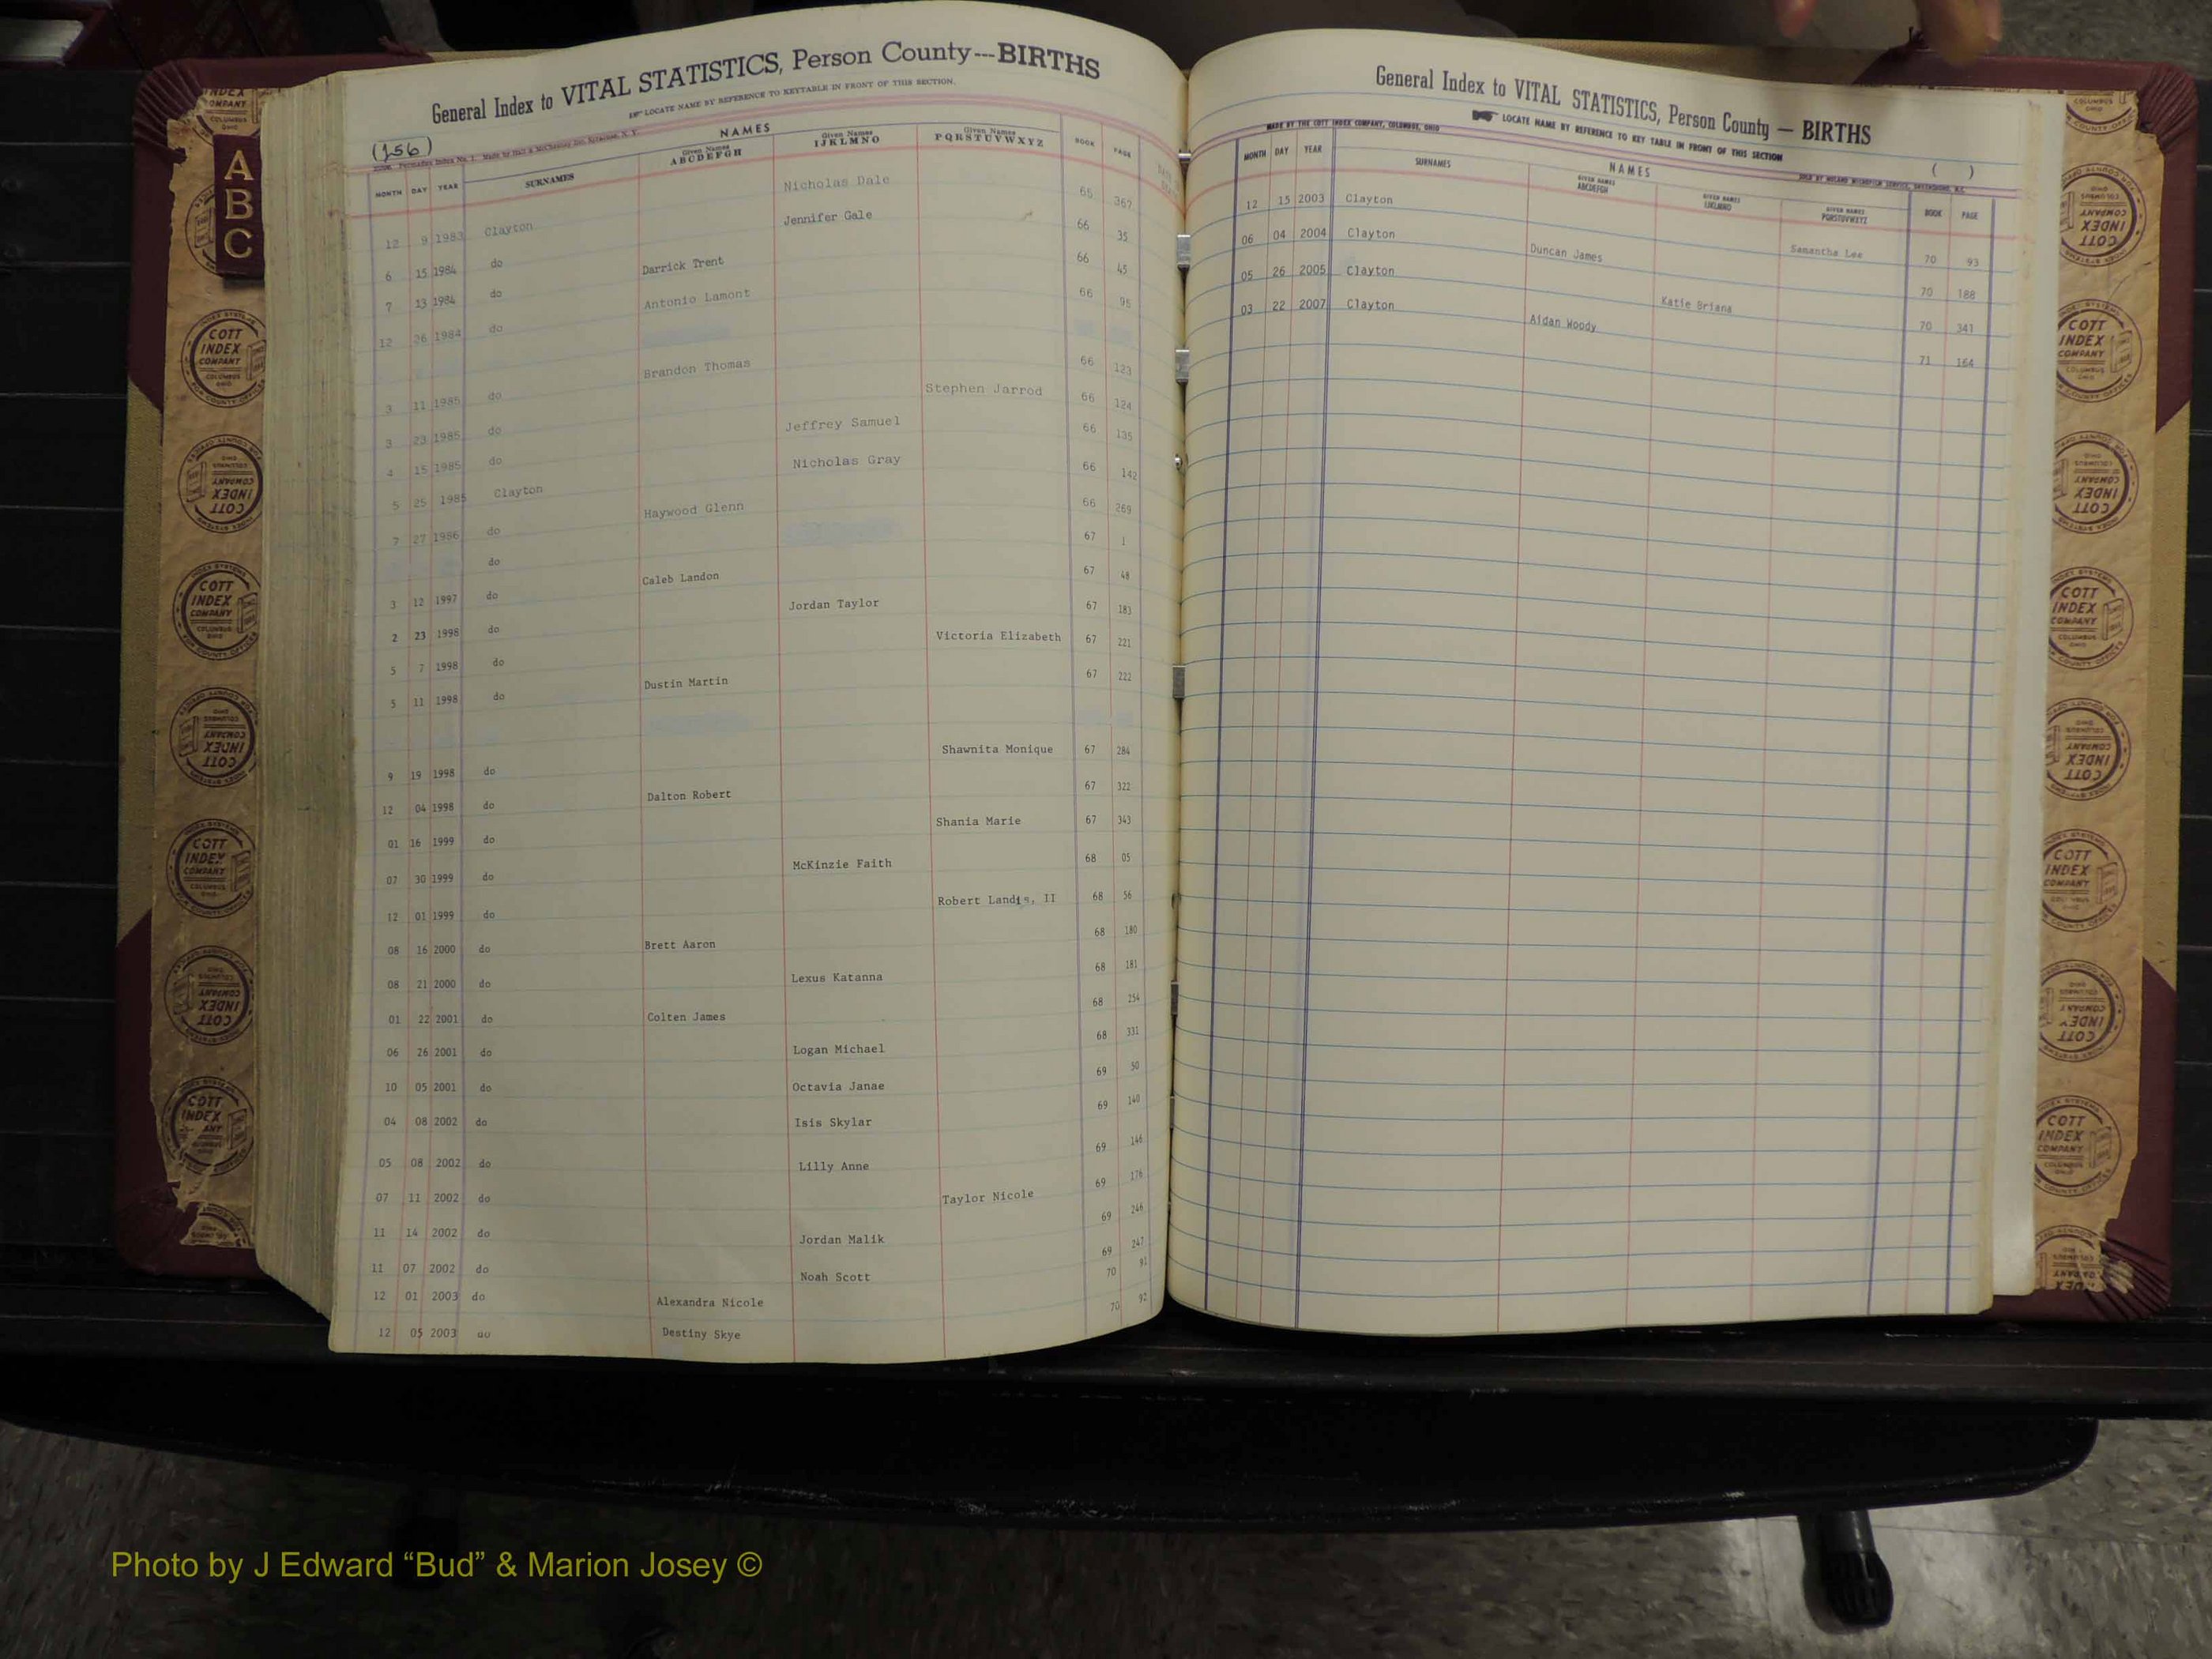 General Index to VITAL STATISTICS, Person County---BIRTHS
LOCATE NAME BY REFERENCE TO KEYTABLE IN FRONT OF THIS SECTION.
(156)
NAMES
MONTH DAY YEAR SURNAMES Given Names ABCDEFGH Given Names IJKLMNO Given Names PQRSTUVWXYZ BOOK PAGE
12 9 1983 Clayton Nicholas Dale 65 367
6 15 1984 do Jennifer Gale 66 35
7 13 1984 do Darrick Trent 66 45
12 26 1984 do Antonio Lamont 66 95
3 11 1985 do Brandon Thomas 66 123
3 23 1985 do Stephen Jarrod 66 124
4 15 1985 do Jeffrey Samuel 66 135
5 25 1985 Clayton Nicholas Gray 66 142
7 27 1986 do Haywood Glenn 66 269
do 67 1
3 12 1997 do Caleb Landon 67 48
2 23 1998 do Jordan Taylor 67 183
5 7 1998 do Victoria Elizabeth 67 221
5 11 1998 do Dustin Martin 67 222
9 19 1998 do Shawnita Monique 67 284
12 04 1998 do Dalton Robert 67 322
01 16 1999 do Shania Marie 67 343
07 30 1999 do McKinzie Faith 68 05
12 01 1999 do Robert Landis, II 68 56
08 16 2000 do Brett Aaron 68 180
08 21 2000 do Lexus Katanna 68 181
01 22 2001 do Colten James 68 254
06 26 2001 do Logan Michael 68 331
10 05 2001 do Octavia Janae 69 50
04 08 2002 do Isis Skylar 69 140
05 08 2002 do Lilly Anne 69 146
07 11 2002 do Taylor Nicole 69 176
11 14 2002 do Jordan Malik 69 246
11 07 2002 do Noah Scott 69 247
12 01 2003 do Alexandra Nicole 70 91
12 05 2003 do Destiny Skye 70 92
General Index to VITAL STATISTICS, Person County — BIRTHS
LOCATE NAME BY REFERENCE TO KEY TABLE IN FRONT OF THIS SECTION
MADE BY THE COTT INDEX COMPANY, COLUMBUS, OHIO
( )
NAMES
MONTH DAY YEAR SURNAMES GIVEN NAMES ABCDEFGH GIVEN NAMES IJKLMNO GIVEN NAMES PQRSTUVWXYZ BOOK PAGE
12 15 2003 Clayton Samantha Lee 70 93
06 04 2004 Clayton Duncan James 70 188
05 26 2005 Clayton Katie Briana 70 341
03 22 2007 Clayton Aidan Woody 71 164
A
B
C
COTT
INDEX
COMPANY
COLUMBUS
OHIO
Photo by J Edward “Bud” & Marion Josey ©